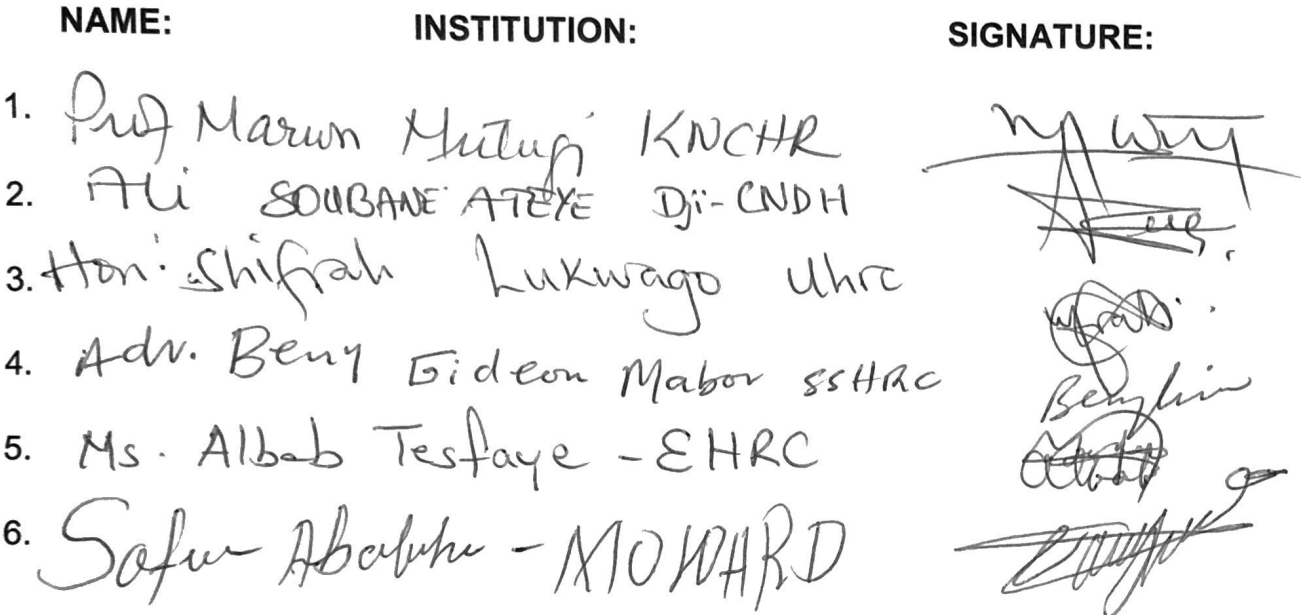 NAME: INSTITUTION: SIGNATURE:
1. Prof Marion Mutugi KNCHR
2. Ali SOUBANE ATEYE Dji-CNDH
3. Hon. Shifrah Lukwago Uhrc
4. Adv. Beny Gideon Mabor SSHRC
5. Ms. Albab Tesfaye - EHRC
6. - MOWHRD